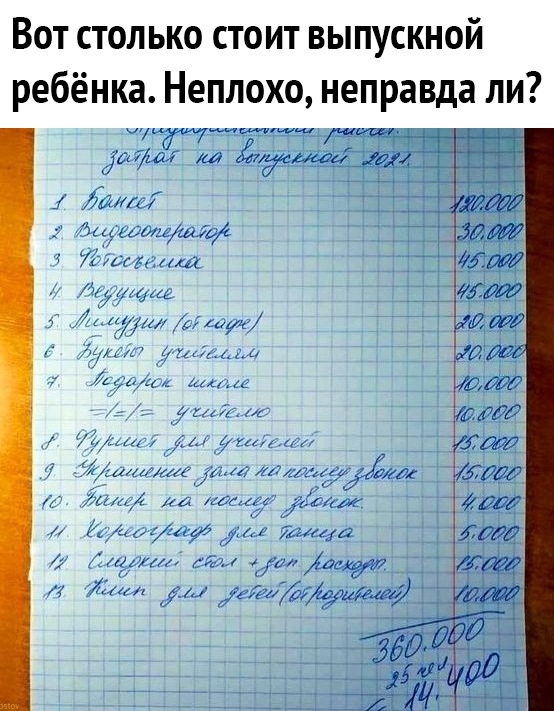 Вот столько стоит выпускной
ребёнка. Неплохо, неправда ли?
Предворительный расчет.
затрат на выпускной 2021.
1. Банкет 120.000
2. Видеооператор 30.000
3. Фотосъемка 45.000
4. Ведущие 45.000
5. Лимузин (от кафе) 20.000
6. Букеты учителям 20.000
7. Подарок школе 10.000
=/=/= учителю 10.000
8. Фуршет для учителей 15.000
9 Украшение зала на послед звонок 15.000
10. Банер на послед звонок. 4.000
11. Хореограф для танца 5.000
12 Сладкий стол + доп расходы. 15.000
13. Клип для детей (от родителей) 10.000
360.000
25 чел
14.400